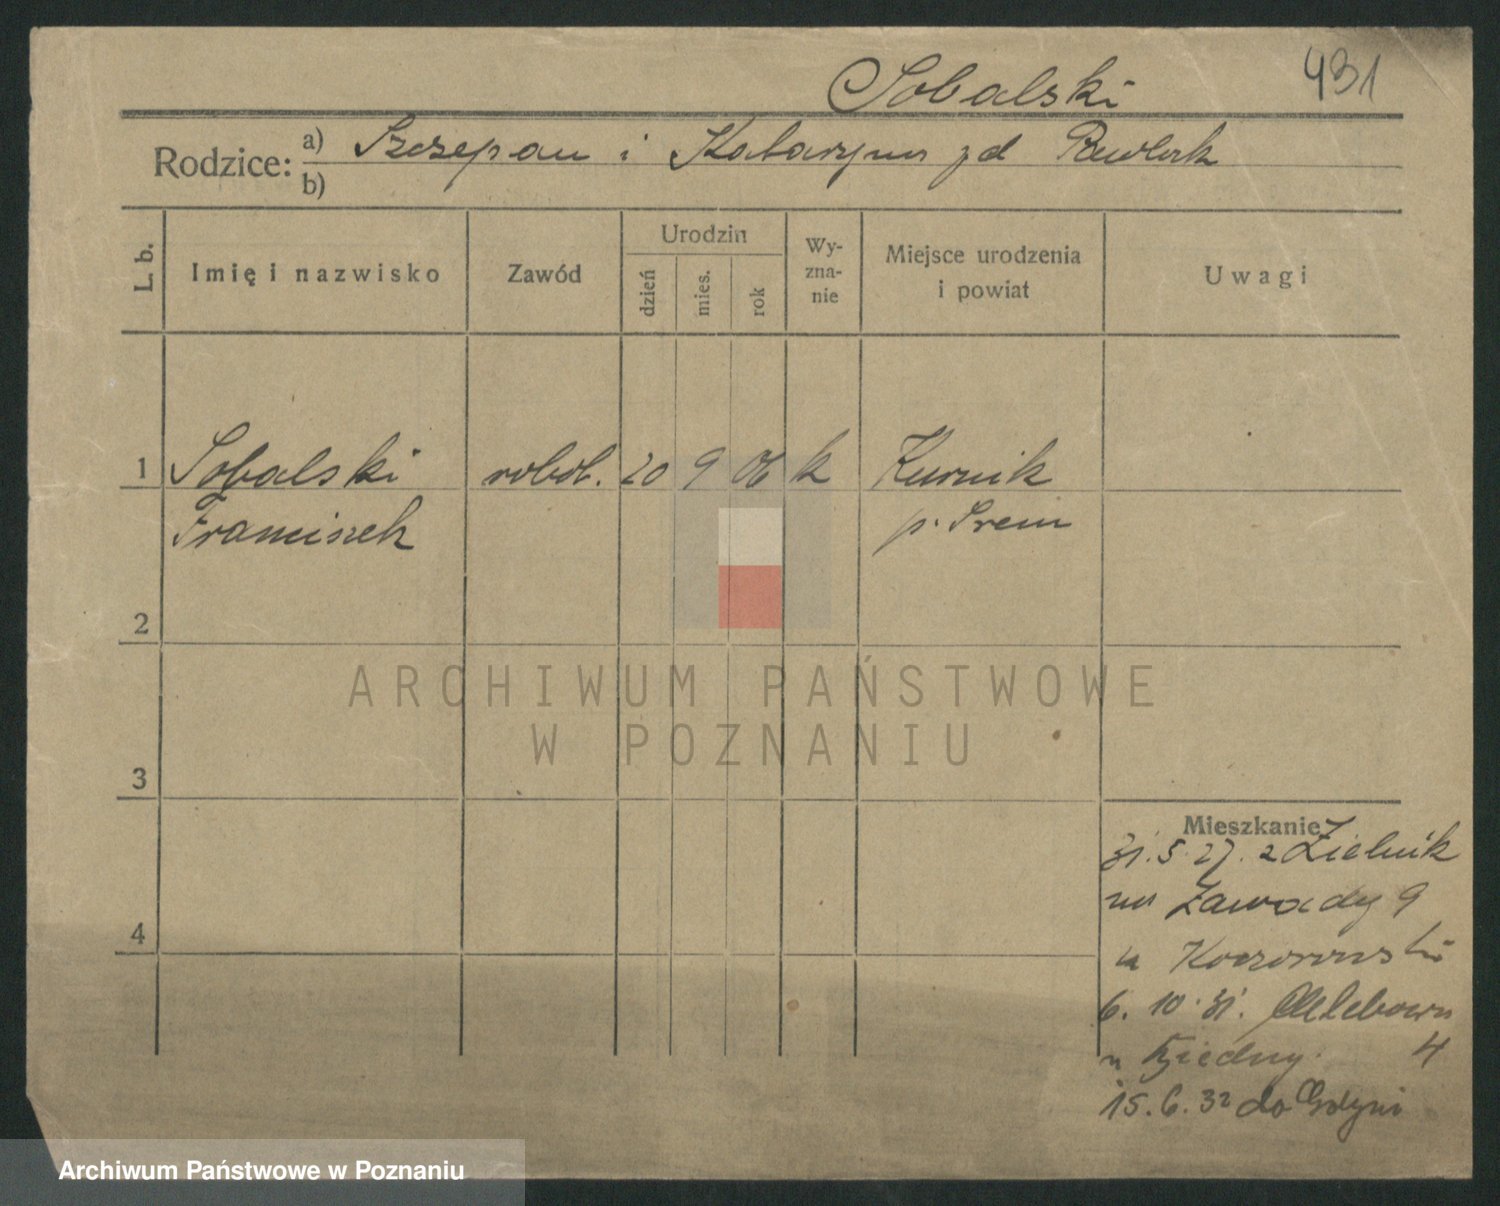 Sobalski
431
Rodzice: a) Szczepan i Katarzyna zd Pawlak
b)
L. b.
Imię i nazwisko
Zawód
Urodzin
dzień
mies.
rok
Wy-
zna-
nie
Miejsce urodzenia
i powiat
Uwagi
1 Sobalski robot. 20 9 06 k Kurnik
Franciszek p. Srem
2
ARCHIWUM PAŃSTWOWE
W POZNANIU
3
Mieszkanie
31.5.27. z Zielnik
na Zawady 9
u Koczorowski
6.10.31. Chlebowa
4
15.6.32 do Gdyni
4
Archiwum Państwowe w Poznaniu